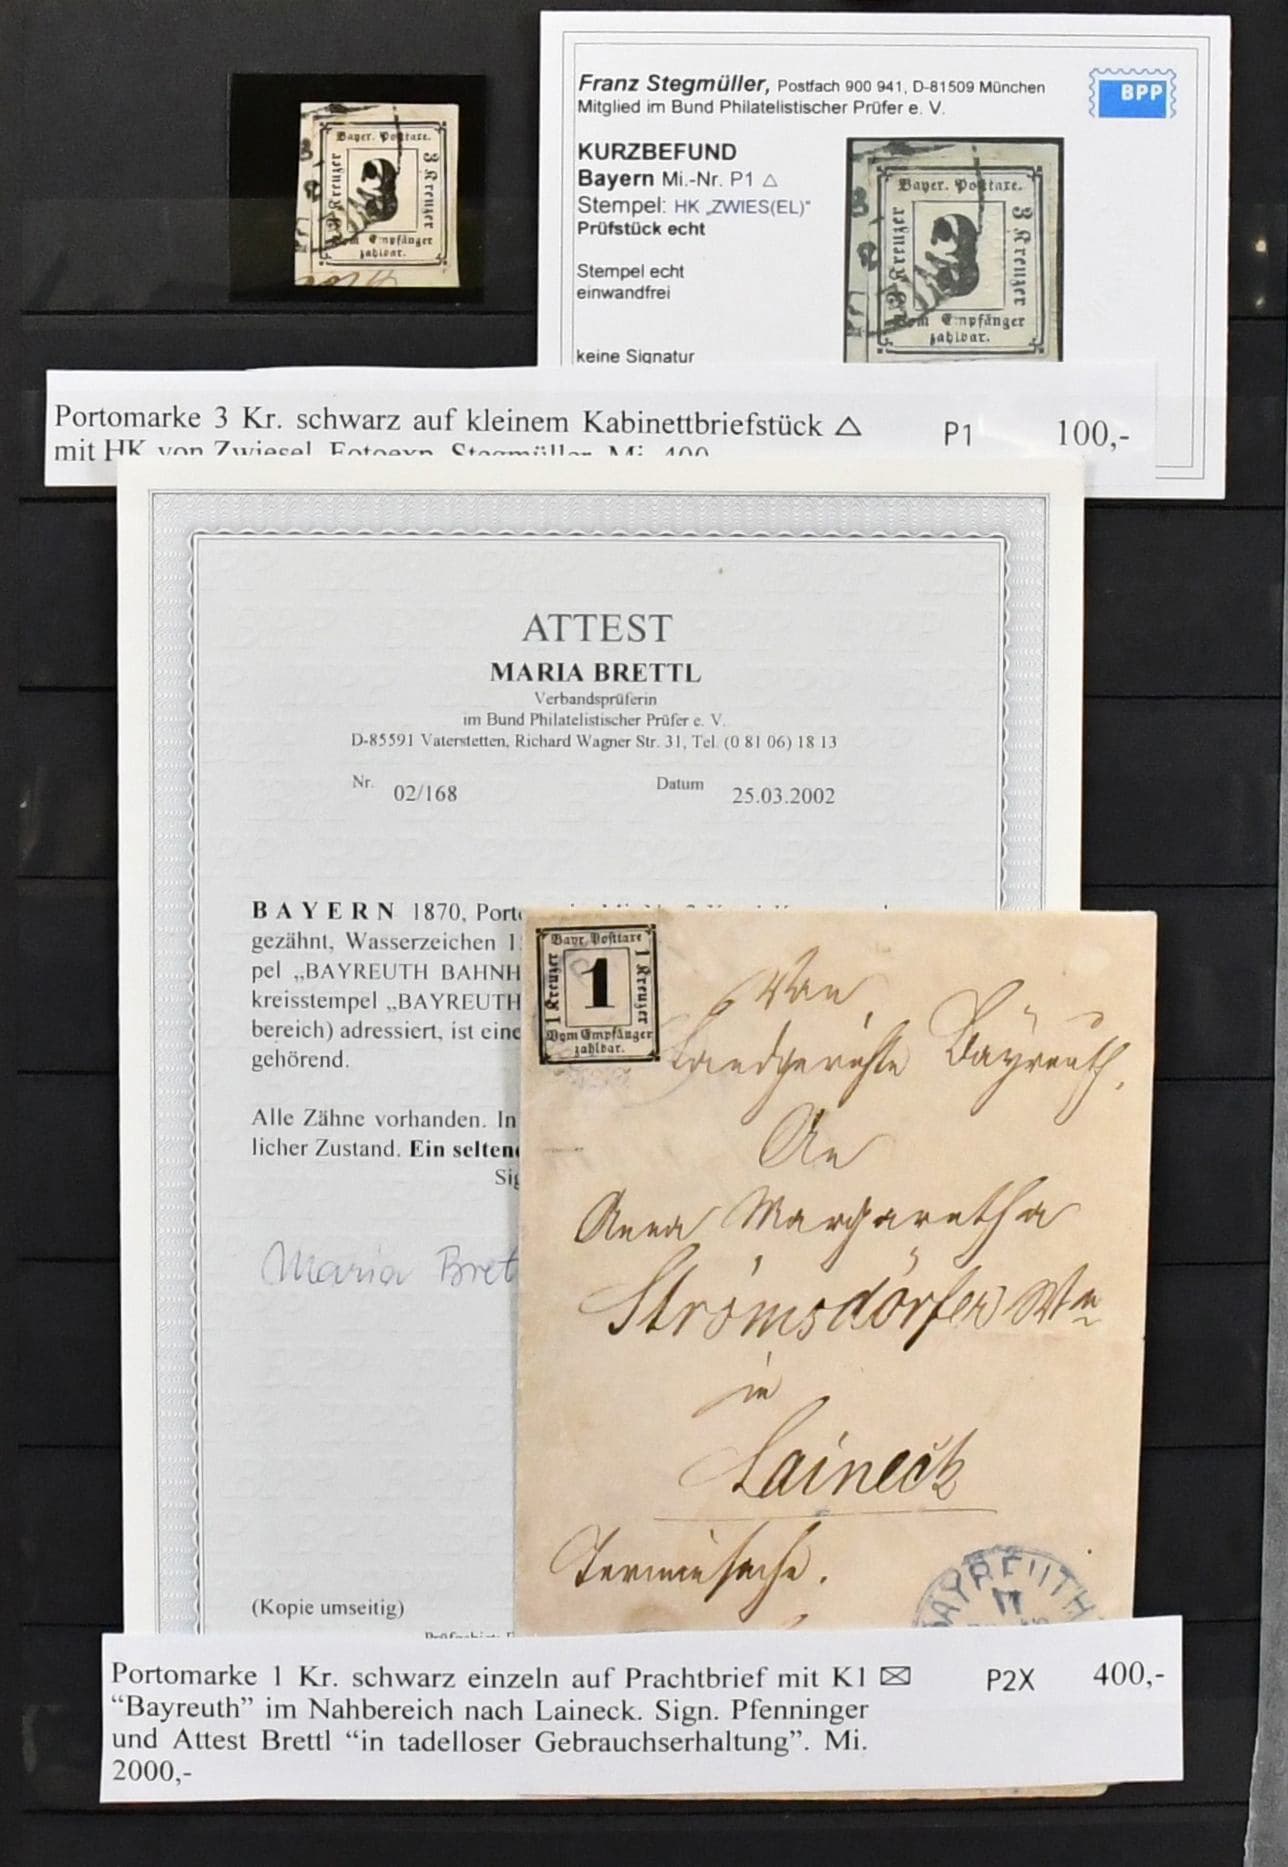 Bayer. Posttaxe.
3 Kreuzer
3 Kreuzer
3
Vom Empfänger
zahlbar.
Franz Stegmüller, Postfach 900 941, D-81509 München
Mitglied im Bund Philatelistischer Prüfer e. V.
BPP
KURZBEFUND
Bayern Mi.-Nr. P1 △
Stempel: HK „ZWIES(EL)"
Prüfstück echt
Stempel echt
einwandfrei
keine Signatur
Bayer. Posttaxe.
3 Kreuzer
3 Kreuzer
3
Vom Empfänger
zahlbar.
Portomarke 3 Kr. schwarz auf kleinem Kabinettbriefstück △ P1 100,-
mit HK von Zwiesel. Fotoexp. Stegmüller. Mi. 400
ATTEST
MARIA BRETTL
Verbandsprüferin
im Bund Philatelistischer Prüfer e. V.
D-85591 Vaterstetten, Richard Wagner Str. 31, Tel. (0 81 06) 18 13
Nr. 02/168 Datum 25.03.2002
BAYERN 1870, Porto
gezähnt, Wasserzeichen 1
pel „BAYREUTH BAHNH
kreisstempel „BAYREUTH
bereich) adressiert, ist eine
gehörend.
Alle Zähne vorhanden. In
licher Zustand. Ein selten
Sig
Maria Bret
(Kopie umseitig)
Bayr. Posttaxe
1 Kreuzer
1 Kreuzer
1
Vom Empfänger
zahlbar.
Von
Landgerichte Bayreuth.
An
Anna Margaretha
Strömsdörfer
in
Laineck
Terminsache.
BAYREUTH
Portomarke 1 Kr. schwarz einzeln auf Prachtbrief mit K1 ✉ P2X 400,-
“Bayreuth” im Nahbereich nach Laineck. Sign. Pfenninger
und Attest Brettl “in tadelloser Gebrauchserhaltung”. Mi.
2000,-